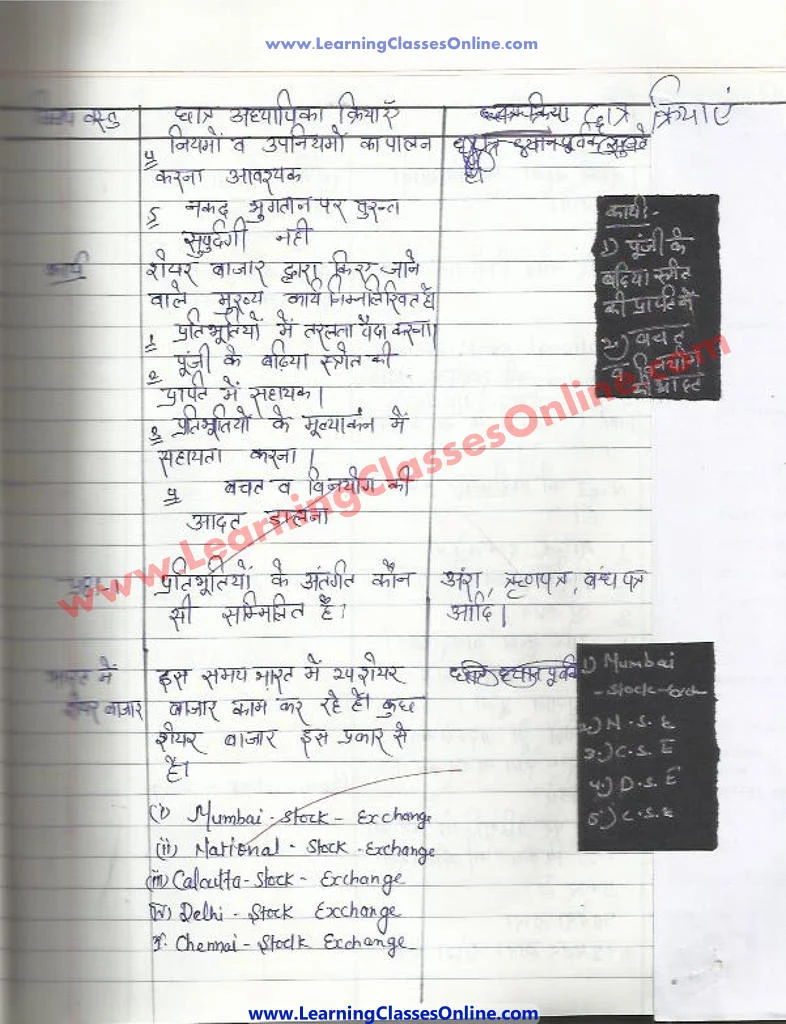 www.LearningClassesOnline.com
विषय वस्तु
छात्र अध्यापिका क्रियाएँ
छात्र क्रियाएं
४ नियमों व उपनियमों का पालन
करना आवश्यक
छात्र ध्यानपूर्वक सुनते
है।
५ नकद भुगतान पर तुरन्त
सुपुर्दगी नही
कार्य
शेयर बाजार द्वारा किए जाने
वाले मुख्य कार्य निम्नलिखित है।
१ प्रतिभूतियों में तरलता पैदा करना।
२ पूंजी के बढिया स्त्रोत की
प्राप्ति में सहायक।
३ प्रतिभूतियों के मूल्याकंन में
सहायता करना।
४ बचत व विनयोग की
आदत डालना
कार्य:-
1) पूंजी के
बढिया स्त्रोत
की प्राप्ति में
2) बचत
व विनयोग
की आदत
www.LearningClassesOnline.com
प्रतिभूतियों के अंतर्गत कौन
सी सम्मिलित है?
अंश, ऋणपत्र, बंधपत्र
आदि।
भारत में
शेयर बाजार
इस समय भारत में 24 शेयर
बाजार काम कर रहे है। कुछ
शेयर बाजार इस प्रकार से
है।
छात्र ध्यानपूर्वक
(i) Mumbai - Stock - Exchange
(ii) National - Stock - Exchange
(iii) Calcutta - Stock - Exchange
(iv) Delhi - Stock Exchange
Chennai - Stock Exchange
1) Mumbai
- Stock - Exch
2.) N.S.E
3.) C.S.E
4.) D.S.E
5.) C.S.E
www.LearningClassesOnline.com